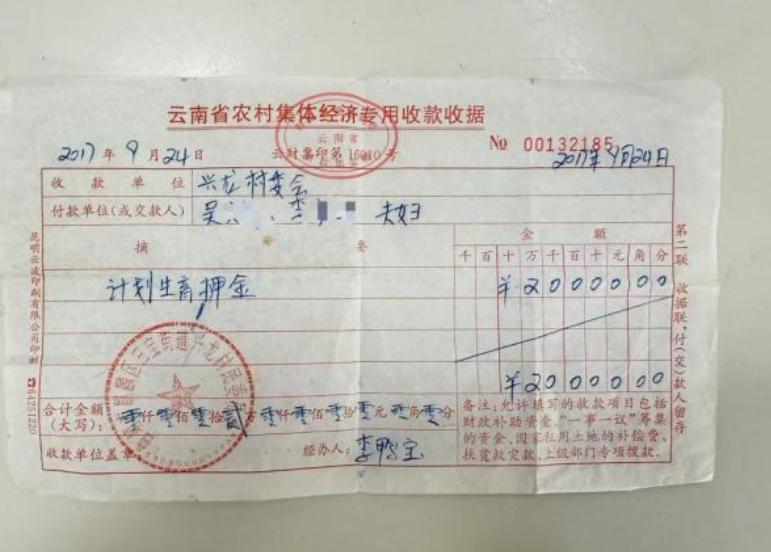 云南省农村集体经济专用收款收据
云南省
2017年9月24日
云财票印第16010号
№ 00132185
2017年9月24日
收款单位 兴龙村委会
付款单位(或交款人) 吴 李 夫妇
摘要
金额
千百十万千百十元角分
计划生育押金
¥2000000
¥2000000
合计金额(大写): 零仟零佰零拾贰万零仟零佰零拾零元零角零分
收款单位盖章:
经办人:李鸭宝
备注:允许填写的收款项目包括
财政补助资金、“一事一议”筹集
的资金、国家征用土地的补偿费、
扶贫救灾款、上级部门专项拨款。
第二联 收据联,付(交)款人留存
昆明云波印刷有限公司印刷
三宝街道兴龙村